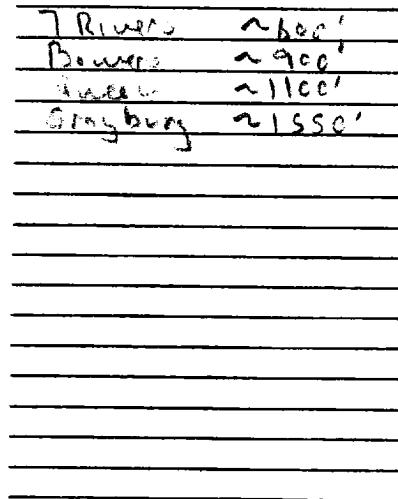 7 Rivers ~600'
Bowers ~900'
Queen ~1100'
Grayburg ~1550'